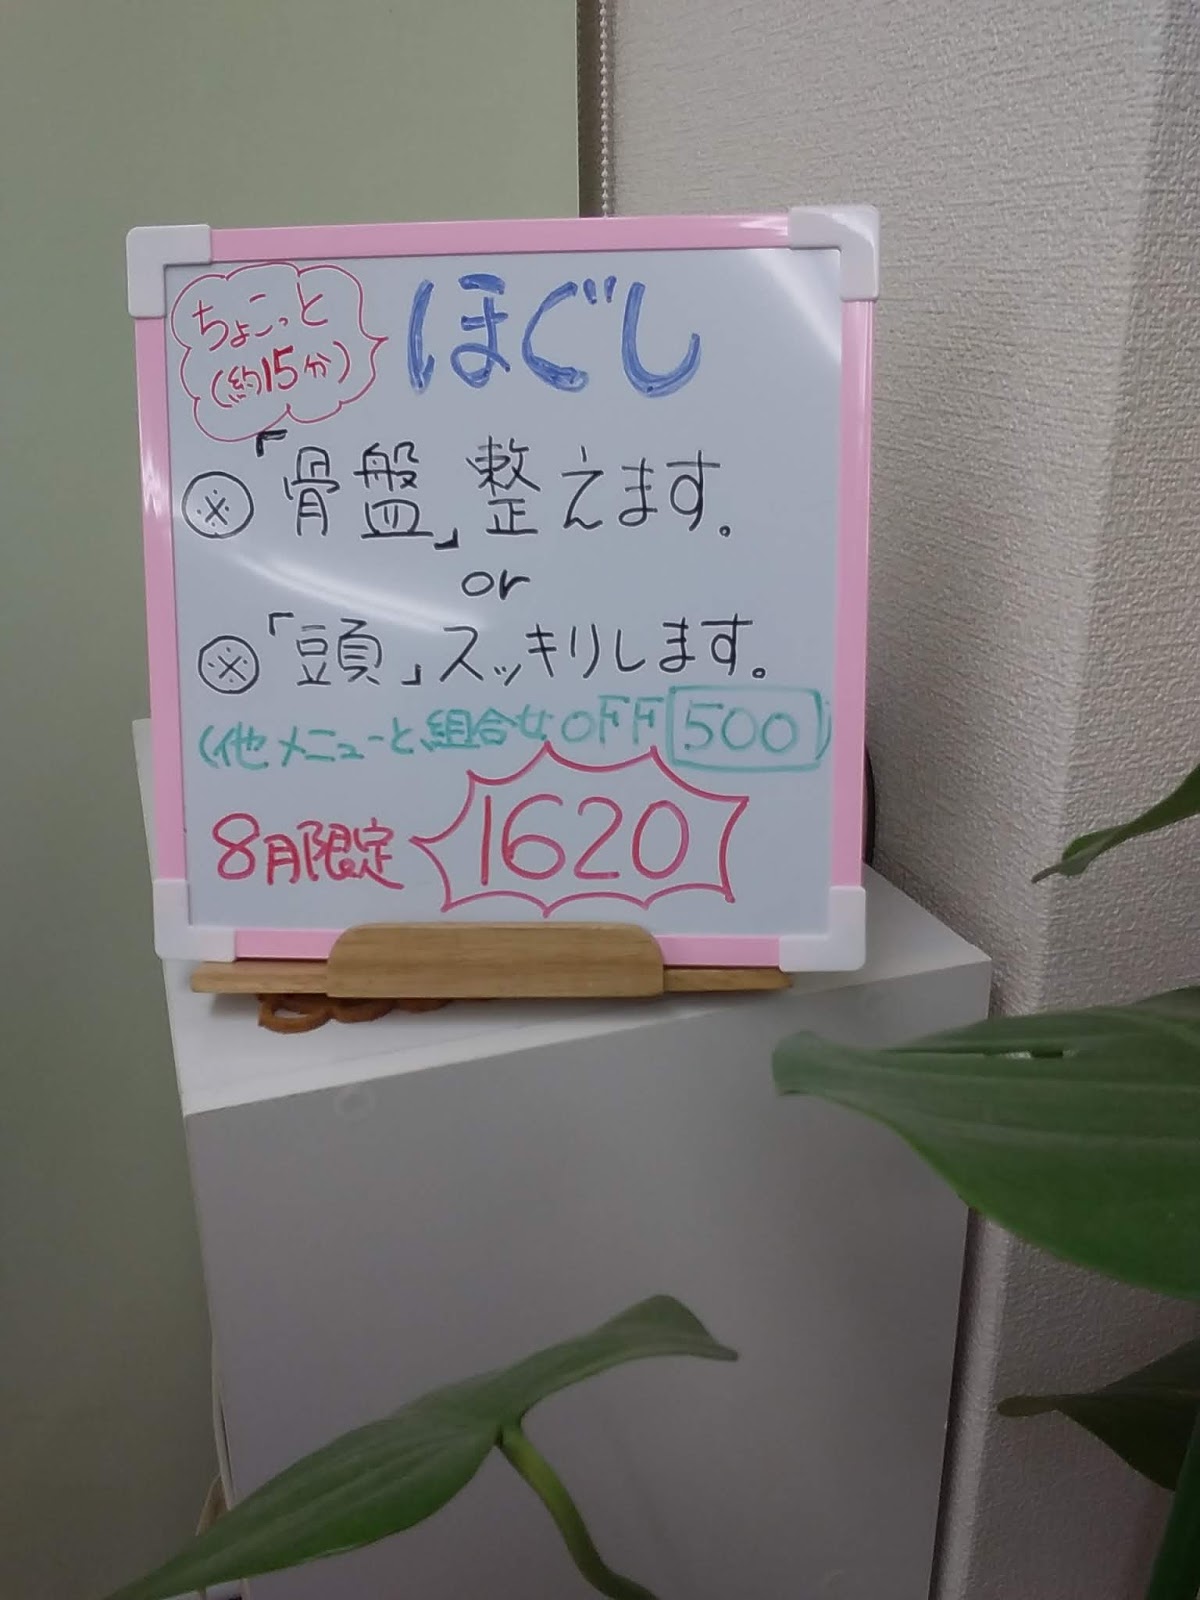 ちょこっと
(約15分)
ほぐし
※「骨盤」整えます。
or
※「頭」スッキリします。
(他メニューと組合せOFF 500)
8月限定 1620